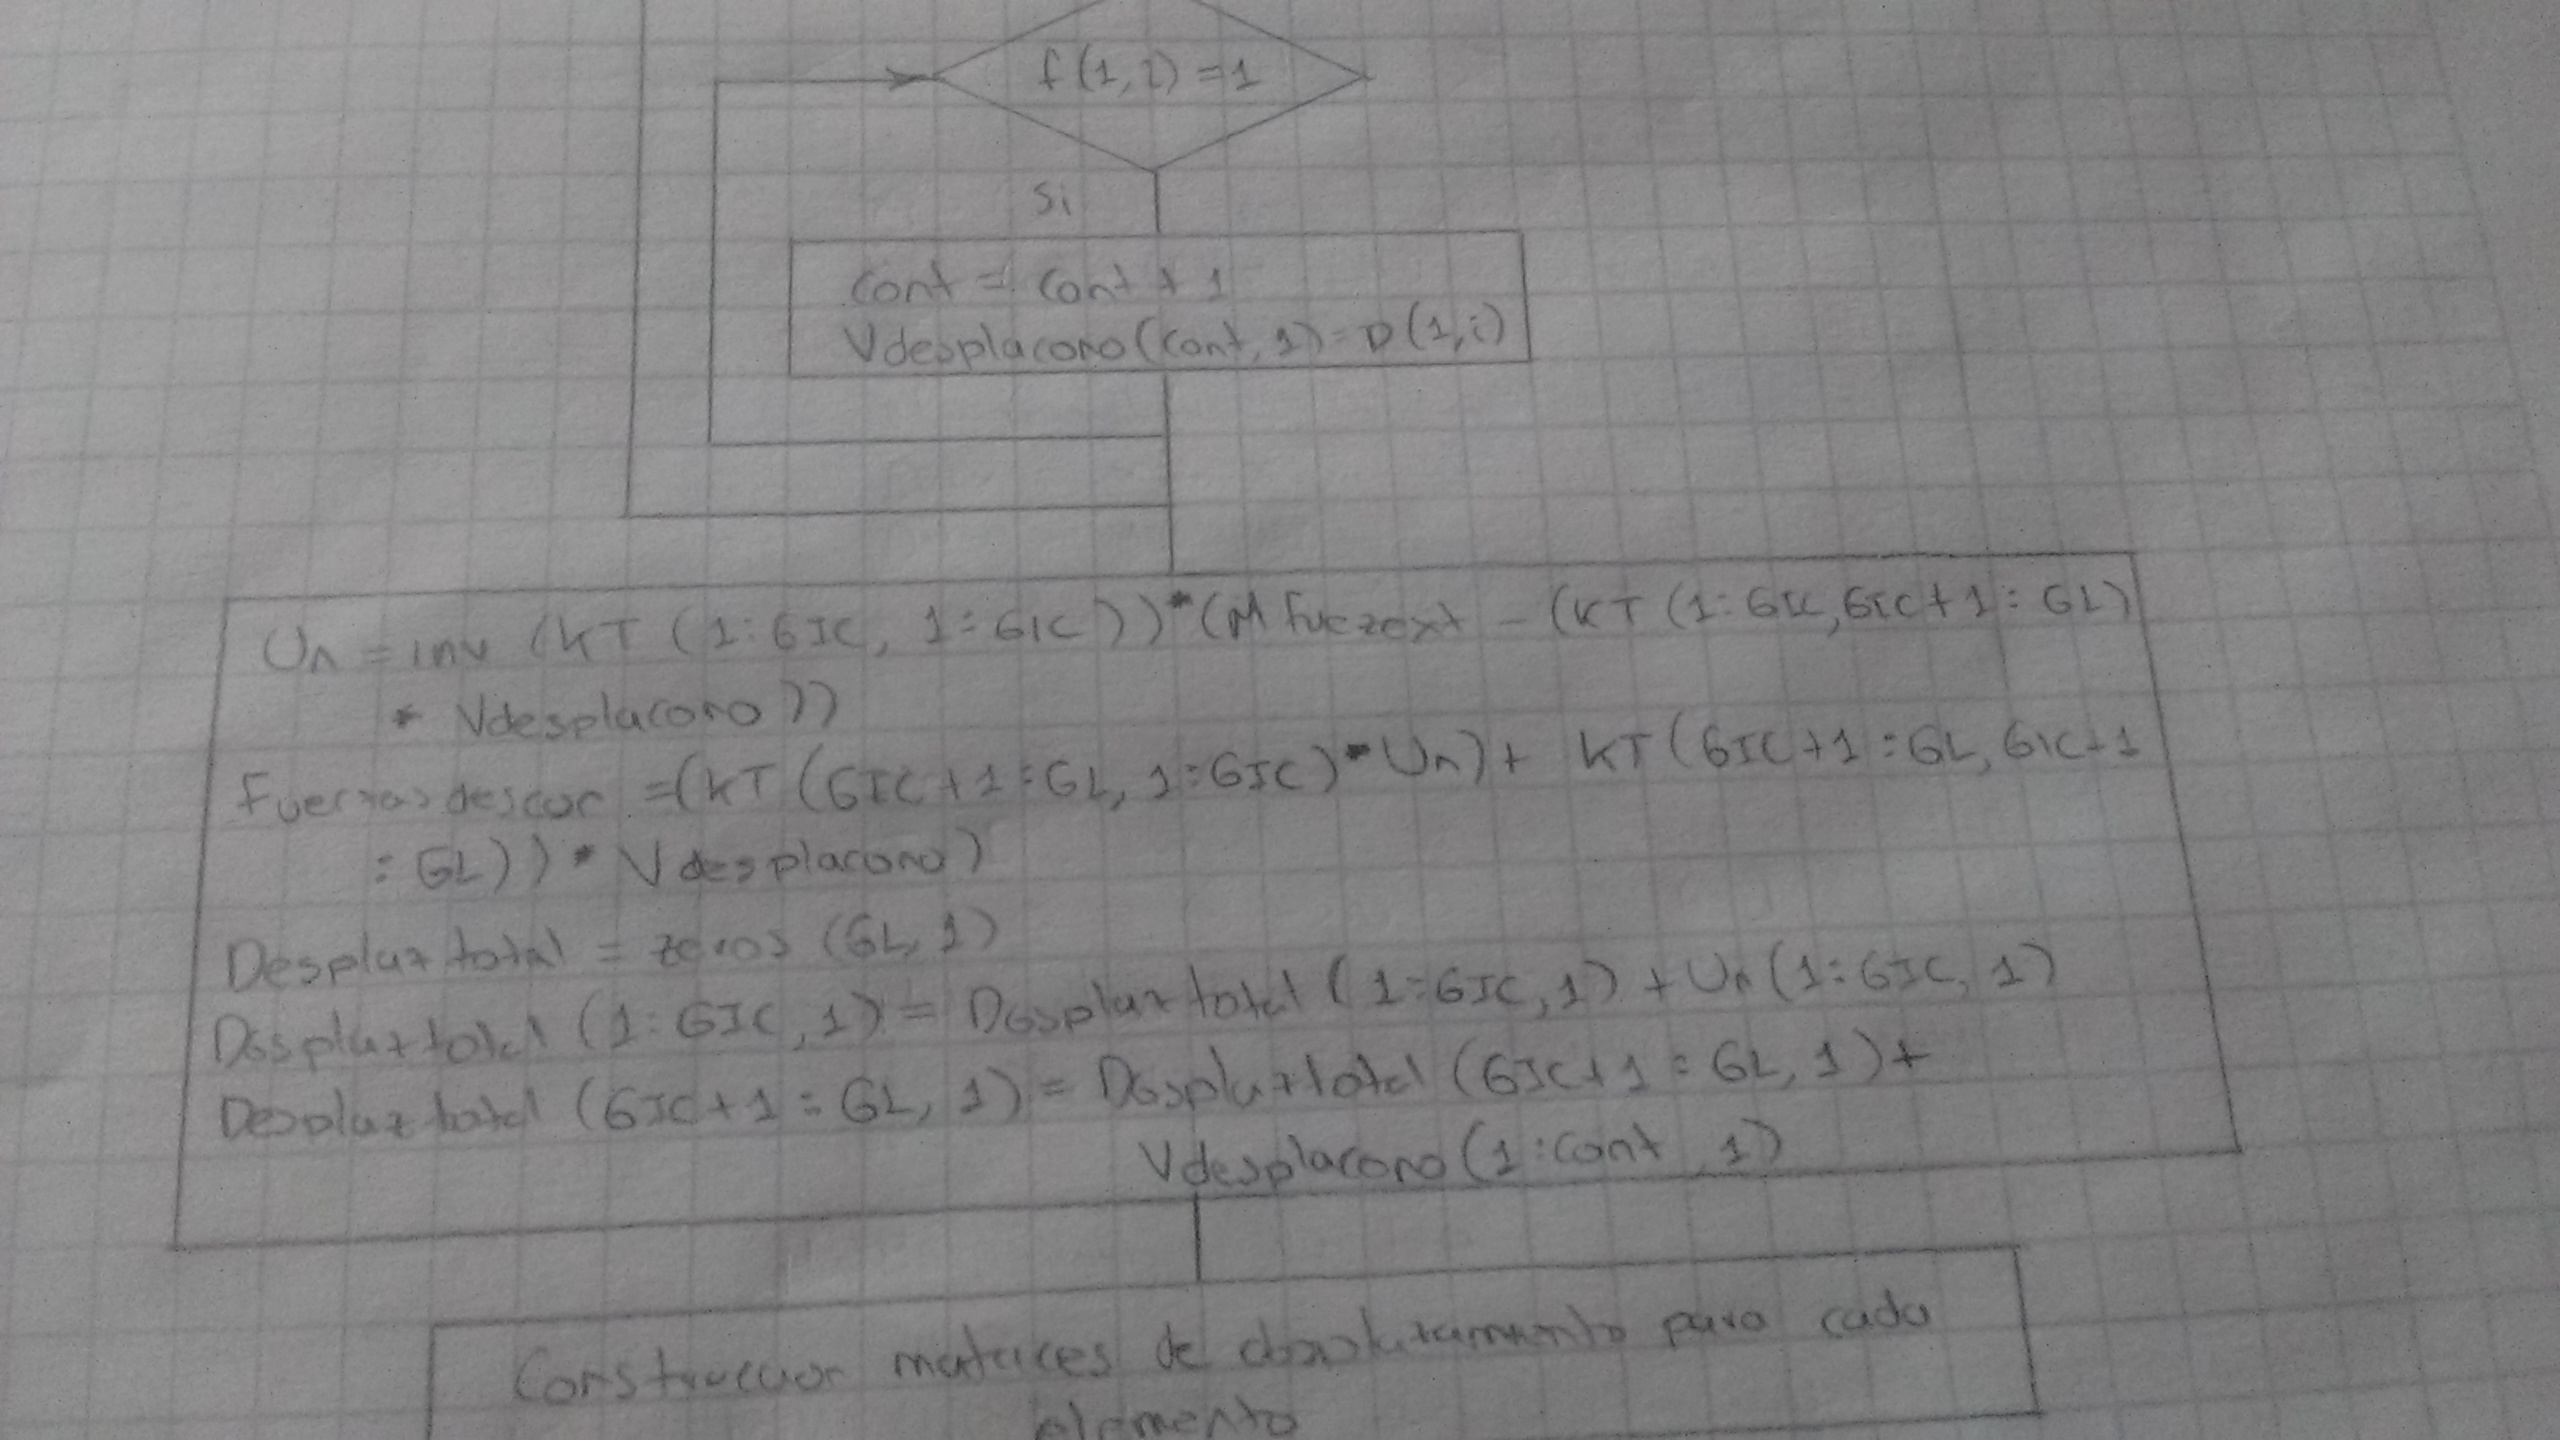 f(1,i) = 1
Si
Cont = Cont + 1
Vdesplacono(cont, 1) = D(1,i)
Un = inv (KT (1:GIC, 1:GIC))*(MFuezext - (KT (1:GIC,GIC+1:GL)
* Vdesplacono))
Fuerzasdescor =(KT(GIC+1:GL, 1:GIC)*Un)+ KT(GIC+1:GL, GIC+1
:GL))*Vdesplacono)
Desplaztotal = zeros (GL, 1)
Desplaztotal (1:GIC, 1) = Desplaztotal (1:GIC, 1) + Un(1:GIC, 1)
Desplaztotal (GIC+1:GL, 1) = Desplaztotal (GIC+1:GL, 1)+
Vdesplacono(1:cont, 1)
Construccion matrices de desplazamiento para cada
elemento